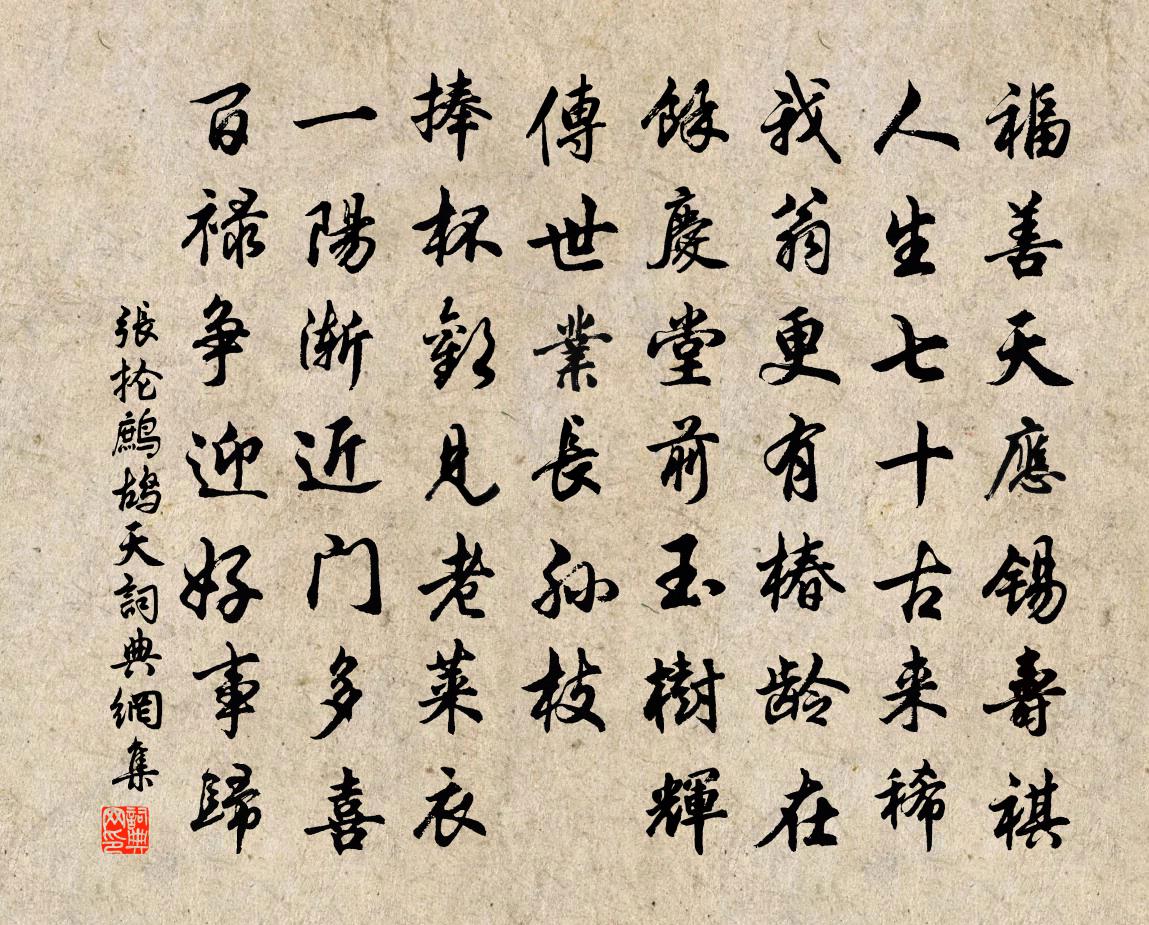 福善天應锡壽祺
人生七十古来稀
我翁更有椿龄在
餘慶堂前玉樹輝
傳世業長孙枝
捧杯歡見老莱衣
一陽漸近门多喜
百禄争迎好事歸
張抡鷓鸪天詞典網集
詞典网印